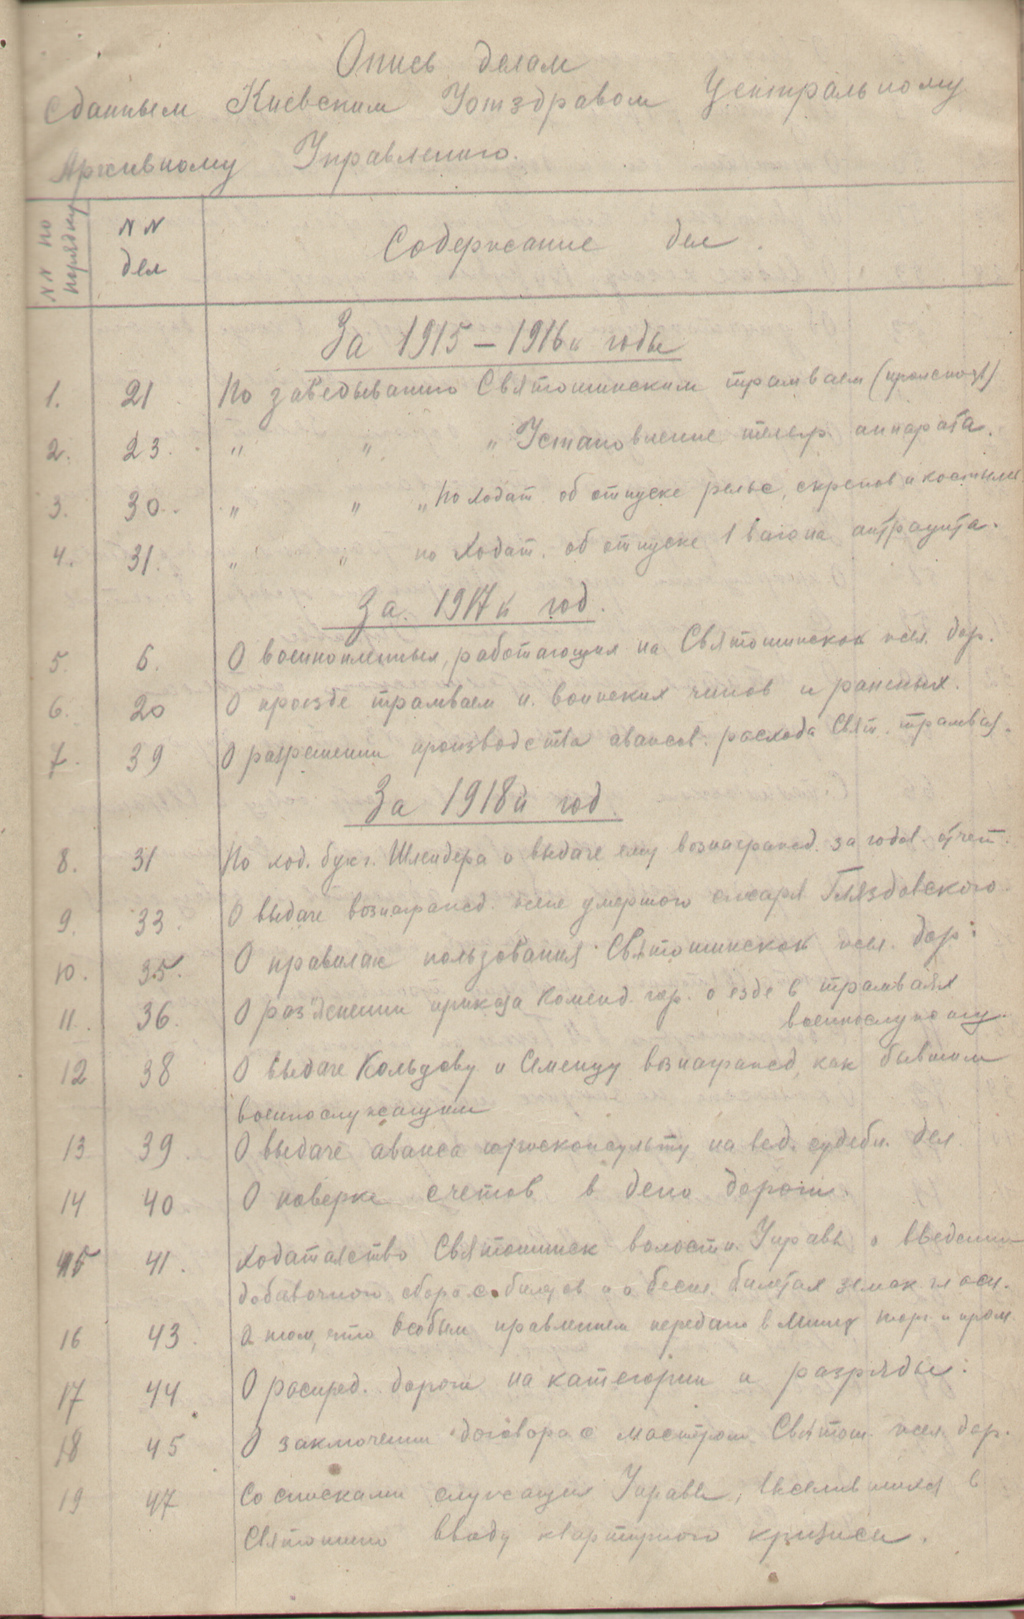 Опись делам
сданным Киевским Устздравом Центральному
Архивному Управлению.
NN по порядку
NN дел
Содержание дел.
За 1915 – 1916й годы
1. 21 По заведыванию Святошинским трамваем
2. 23. " " " Установление телеф. аппарата.
3. 30. " " " по ходат. об отпуске рельс, скрепов и костылей
4. 31. " " по ходат. об отпуске 1 вагона антрацита.
За 1917й год.
5. 6. О военнопленных, работающих на Святошинской жел. дор.
6. 20 О проезде трамваем н. воинских чинов и раненых.
7. 39 О разрешении производства авансов. расхода Свят. трамвая.
За 1918й год.
8. 31 По ход. бухг. Шлейдера о выдаче ему вознагражд. за годов. отчет.
9. 33. О выдаче вознагражд. жене умершого слесаря Гвяздовского.
10. 35. О правилах пользования Святошинской жел. дор.
11. 36. О раз'яснении приказа Коменд. гор. о езде в трамваях
военнослужащ.
12 38 О выдаче Кольцову и Семенцу вознагражд, как бывшим
военнослужащим
13 39. О выдаче аванса юрисконсульту на вед. судебн. дел
14 40 О поверке счетов в депо дороги.
15 41. Ходатайство Святошинск волостн. Управы о введении
добавочного сбора с билетов и о бесп. билетах земск гласн.
16 43. О том, что особым правлением передано в Мин. торг. и пром.
17 44 О распред. дороги на категории и разряды.
18 45 О заключении договора с Святош. жел. дор.
19 47 Со списками служащих Управы, вселившихся в
Святошино ввиду квартирного кризиса.